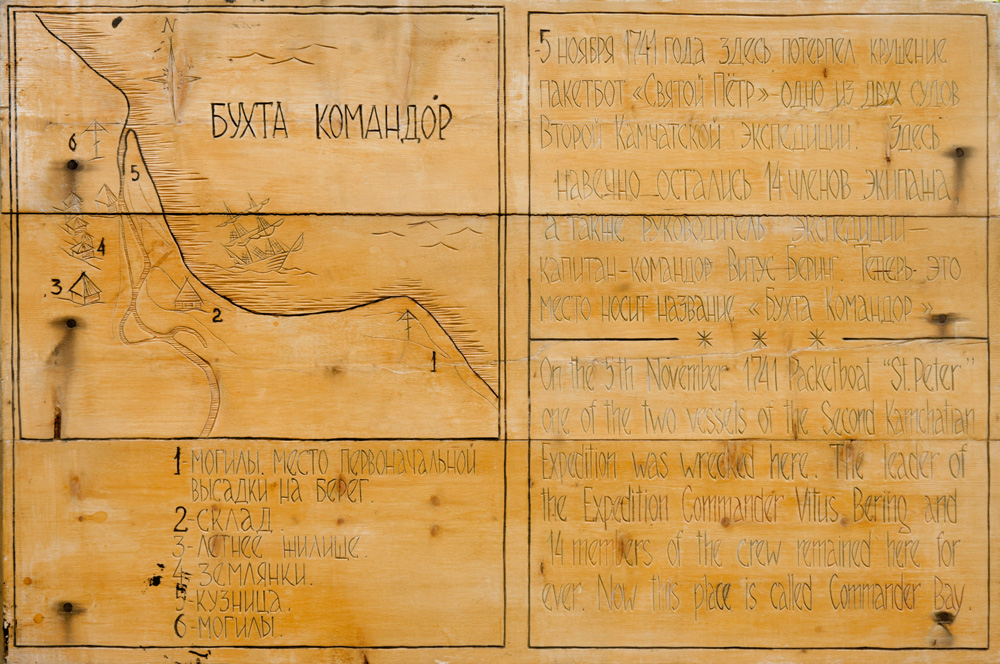 N
БУХТА КОМАНДОР
6
5
4
3
2
1
1-МОГИЛЫ. МЕСТО ПЕРВОНАЧАЛЬНОЙ
ВЫСАДКИ НА БЕРЕГ.
2-СКЛАД.
3-ЛЕТНЕЕ ЖИЛИЩЕ.
4-ЗЕМЛЯНКИ.
5-КУЗНИЦА.
6-МОГИЛЫ.
5 НОЯБРЯ 1741 ГОДА ЗДЕСЬ ПОТЕРПЕЛ КРУШЕНИЕ
ПАКЕТБОТ «СВЯТОЙ ПЁТР» -ОДНО ИЗ ДВУХ СУДОВ
ВТОРОЙ КАМЧАТСКОЙ ЭКСПЕДИЦИИ. ЗДЕСЬ
НАВЕЧНО ОСТАЛИСЬ 14 ЧЛЕНОВ ЭКИПАЖА
А ТАКЖЕ РУКОВОДИТЕЛЬ ЭКСПЕДИЦИИ—
КАПИТАН-КОМАНДОР ВИТУС БЕРИНГ. ТЕПЕРЬ- ЭТО
МЕСТО НОСИТ НАЗВАНИЕ «БУХТА КОМАНДОР»
* * *
On the 5th November 1741 Packetboat "St. Peter"
one of the two vessels of the Second Kamchatian
Expedition was wrecked here. The leader of
the Expedition Commander Vitus Bering and
14 members of the crew remained here for
ever. Now this place is called Commander Bay.